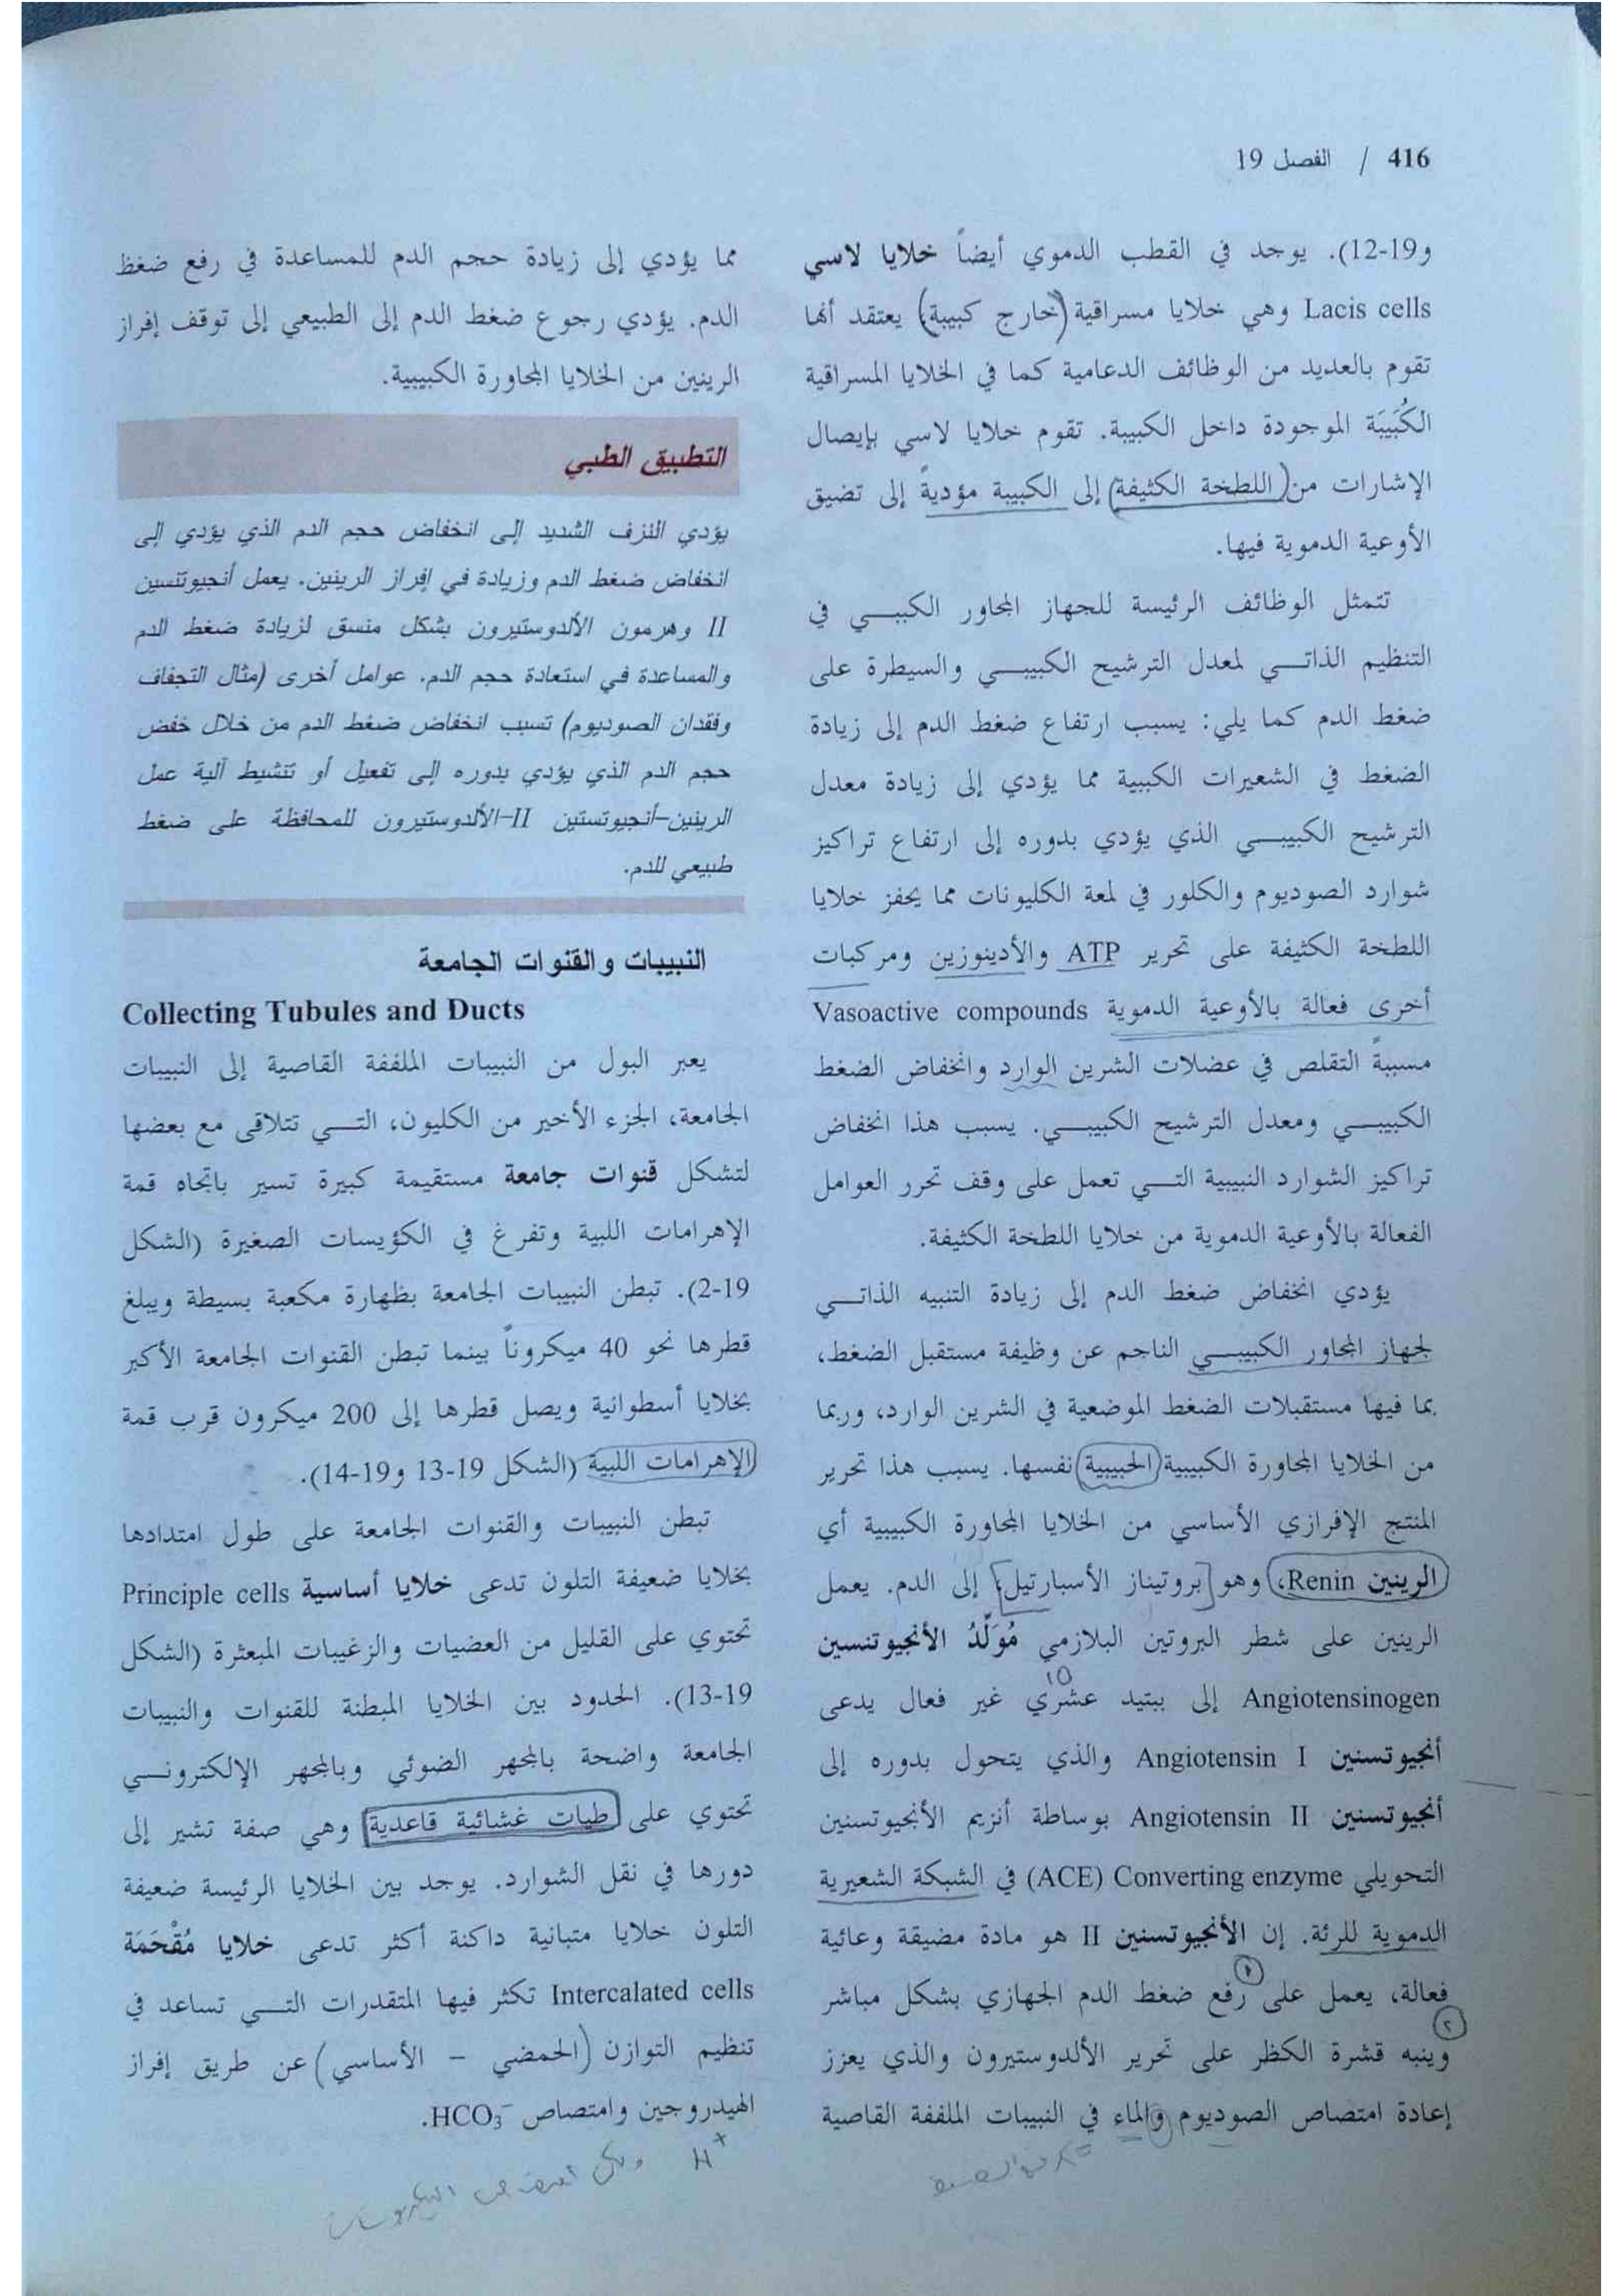 416 / الفصل 19
و19-12). يوجد في القطب الدموي أيضاً خلايا لاسي
Lacis cells وهي خلايا مسراقية (خارج كبيبة) يعتقد أنها
تقوم بالعديد من الوظائف الدعامية كما في الخلايا المسراقية
الكُبَيبَة الموجودة داخل الكبيبة. تقوم خلايا لاسي بإيصال
الإشارات من (اللطخة الكثيفة) إلى الكبيبة مؤديةً إلى تضيق
الأوعية الدموية فيها.
تتمثل الوظائف الرئيسة للجهاز المجاور الكببـــي في
التنظيم الذاتـــي لمعدل الترشيح الكبيبـــي والسيطرة على
ضغط الدم كما يلي: يسبب ارتفاع ضغط الدم إلى زيادة
الضغط في الشعيرات الكببية مما يؤدي إلى زيادة معدل
الترشيح الكبيبـــي الذي يؤدي بدوره إلى ارتفاع تراكيز
شوارد الصوديوم والكلور في لمعة الكليونات مما يحفز خلايا
اللطخة الكثيفة على تحرير ATP والأدينوزين ومركبات
أخرى فعالة بالأوعية الدموية Vasoactive compounds
مسببةً التقلص في عضلات الشرين الوارد وانخفاض الضغط
الكبيبـــي ومعدل الترشيح الكبيبـــي. يسبب هذا انخفاض
تراكيز الشوارد النبيبية التـــي تعمل على وقف تحرر العوامل
الفعالة بالأوعية الدموية من خلايا اللطخة الكثيفة.
يؤدي انخفاض ضغط الدم إلى زيادة التنبيه الذاتـــي
لجهاز المجاور الكبيبـــي الناجم عن وظيفة مستقبل الضغط،
بما فيها مستقبلات الضغط الموضعية في الشرين الوارد، وربما
من الخلايا المجاورة الكبيبية (الحبيبية) نفسها. يسبب هذا تحرير
المنتج الإفرازي الأساسي من الخلايا المجاورة الكبيبية أي
الرينين Renin، وهو [بروتيناز الأسبارتيل] إلى الدم. يعمل
الرينين على شطر البروتين البلازمي مُوَلِّدُ الأنجيوتنسين
10
Angiotensinogen إلى ببتيد عشري غير فعال يدعى
أنجيوتسنين Angiotensin I والذي يتحول بدوره إلى
أنجيوتسنين Angiotensin II بوساطة أنزيم الأنجيوتسنين
التحويلي Converting enzyme (ACE) في الشبكة الشعيرية
الدموية للرئة. إن الأنجيوتسنين II هو مادة مضيقة وعائية
فعالة، يعمل على رفع ضغط الدم الجهازي بشكل مباشر
٢
وينبه قشرة الكظر على تحرير الألدوستيرون والذي يعزز
إعادة امتصاص الصوديوم والماء في النبيبات الملففة القاصية
مما يؤدي إلى زيادة حجم الدم للمساعدة في رفع ضغظ
الدم. يؤدي رجوع ضغط الدم إلى الطبيعي إلى توقف إفراز
الرينين من الخلايا المجاورة الكبيبية.
التطبيق الطبي
يؤدي النزف الشديد إلى انخفاض حجم الدم الذي يؤدي إلى
انخفاض ضغط الدم وزيادة في إفراز الرينين. يعمل أنجيوتنسين
II وهرمون الألدوستيرون بشكل منسق لزيادة ضغط الدم
والمساعدة في استعادة حجم الدم. عوامل أخرى (مثال التجفاف
وفقدان الصوديوم) تسبب انخفاض ضغط الدم من خلال خفض
حجم الدم الذي يؤدي بدوره إلى تفعيل أو تنشيط آلية عمل
الرينين-أنجيوتستين II-الألدوستيرون للمحافظة على ضغط
طبيعي للدم.
النبيبات والقنوات الجامعة
Collecting Tubules and Ducts
يعبر البول من النبيبات الملففة القاصية إلى النبيبات
الجامعة، الجزء الأخير من الكليون، التـــي تتلاقى مع بعضها
لتشكل قنوات جامعة مستقيمة كبيرة تسير باتجاه قمة
الإهرامات اللبية وتفرغ في الكؤيسات الصغيرة (الشكل
19-2). تبطن النبيبات الجامعة بظهارة مكعبة بسيطة ويبلغ
قطرها نحو 40 ميكروناً بينما تبطن القنوات الجامعة الأكبر
بخلايا أسطوانية ويصل قطرها إلى 200 ميكرون قرب قمة
الإهرامات اللبية (الشكل 19-13 و19-14).
تبطن النبيبات والقنوات الجامعة على طول امتدادها
بخلايا ضعيفة التلون تدعى خلايا أساسية Principle cells
تحتوي على القليل من العضيات والزغيبات المبعثرة (الشكل
19-13). الحدود بين الخلايا المبطنة للقنوات والنبيبات
الجامعة واضحة بالمجهر الضوئي وبالمجهر الإلكترونـــي
تحتوي على طيات غشائية قاعدية وهي صفة تشير إلى
دورها في نقل الشوارد. يوجد بين الخلايا الرئيسة ضعيفة
التلون خلايا متبانية داكنة أكثر تدعى خلايا مُقْحَمَة
Intercalated cells تكثر فيها المتقدرات التـــي تساعد في
تنظيم التوازن (الحمضي – الأساسي) عن طريق إفراز
الهيدروجين وامتصاص HCO₃⁻.
H⁺